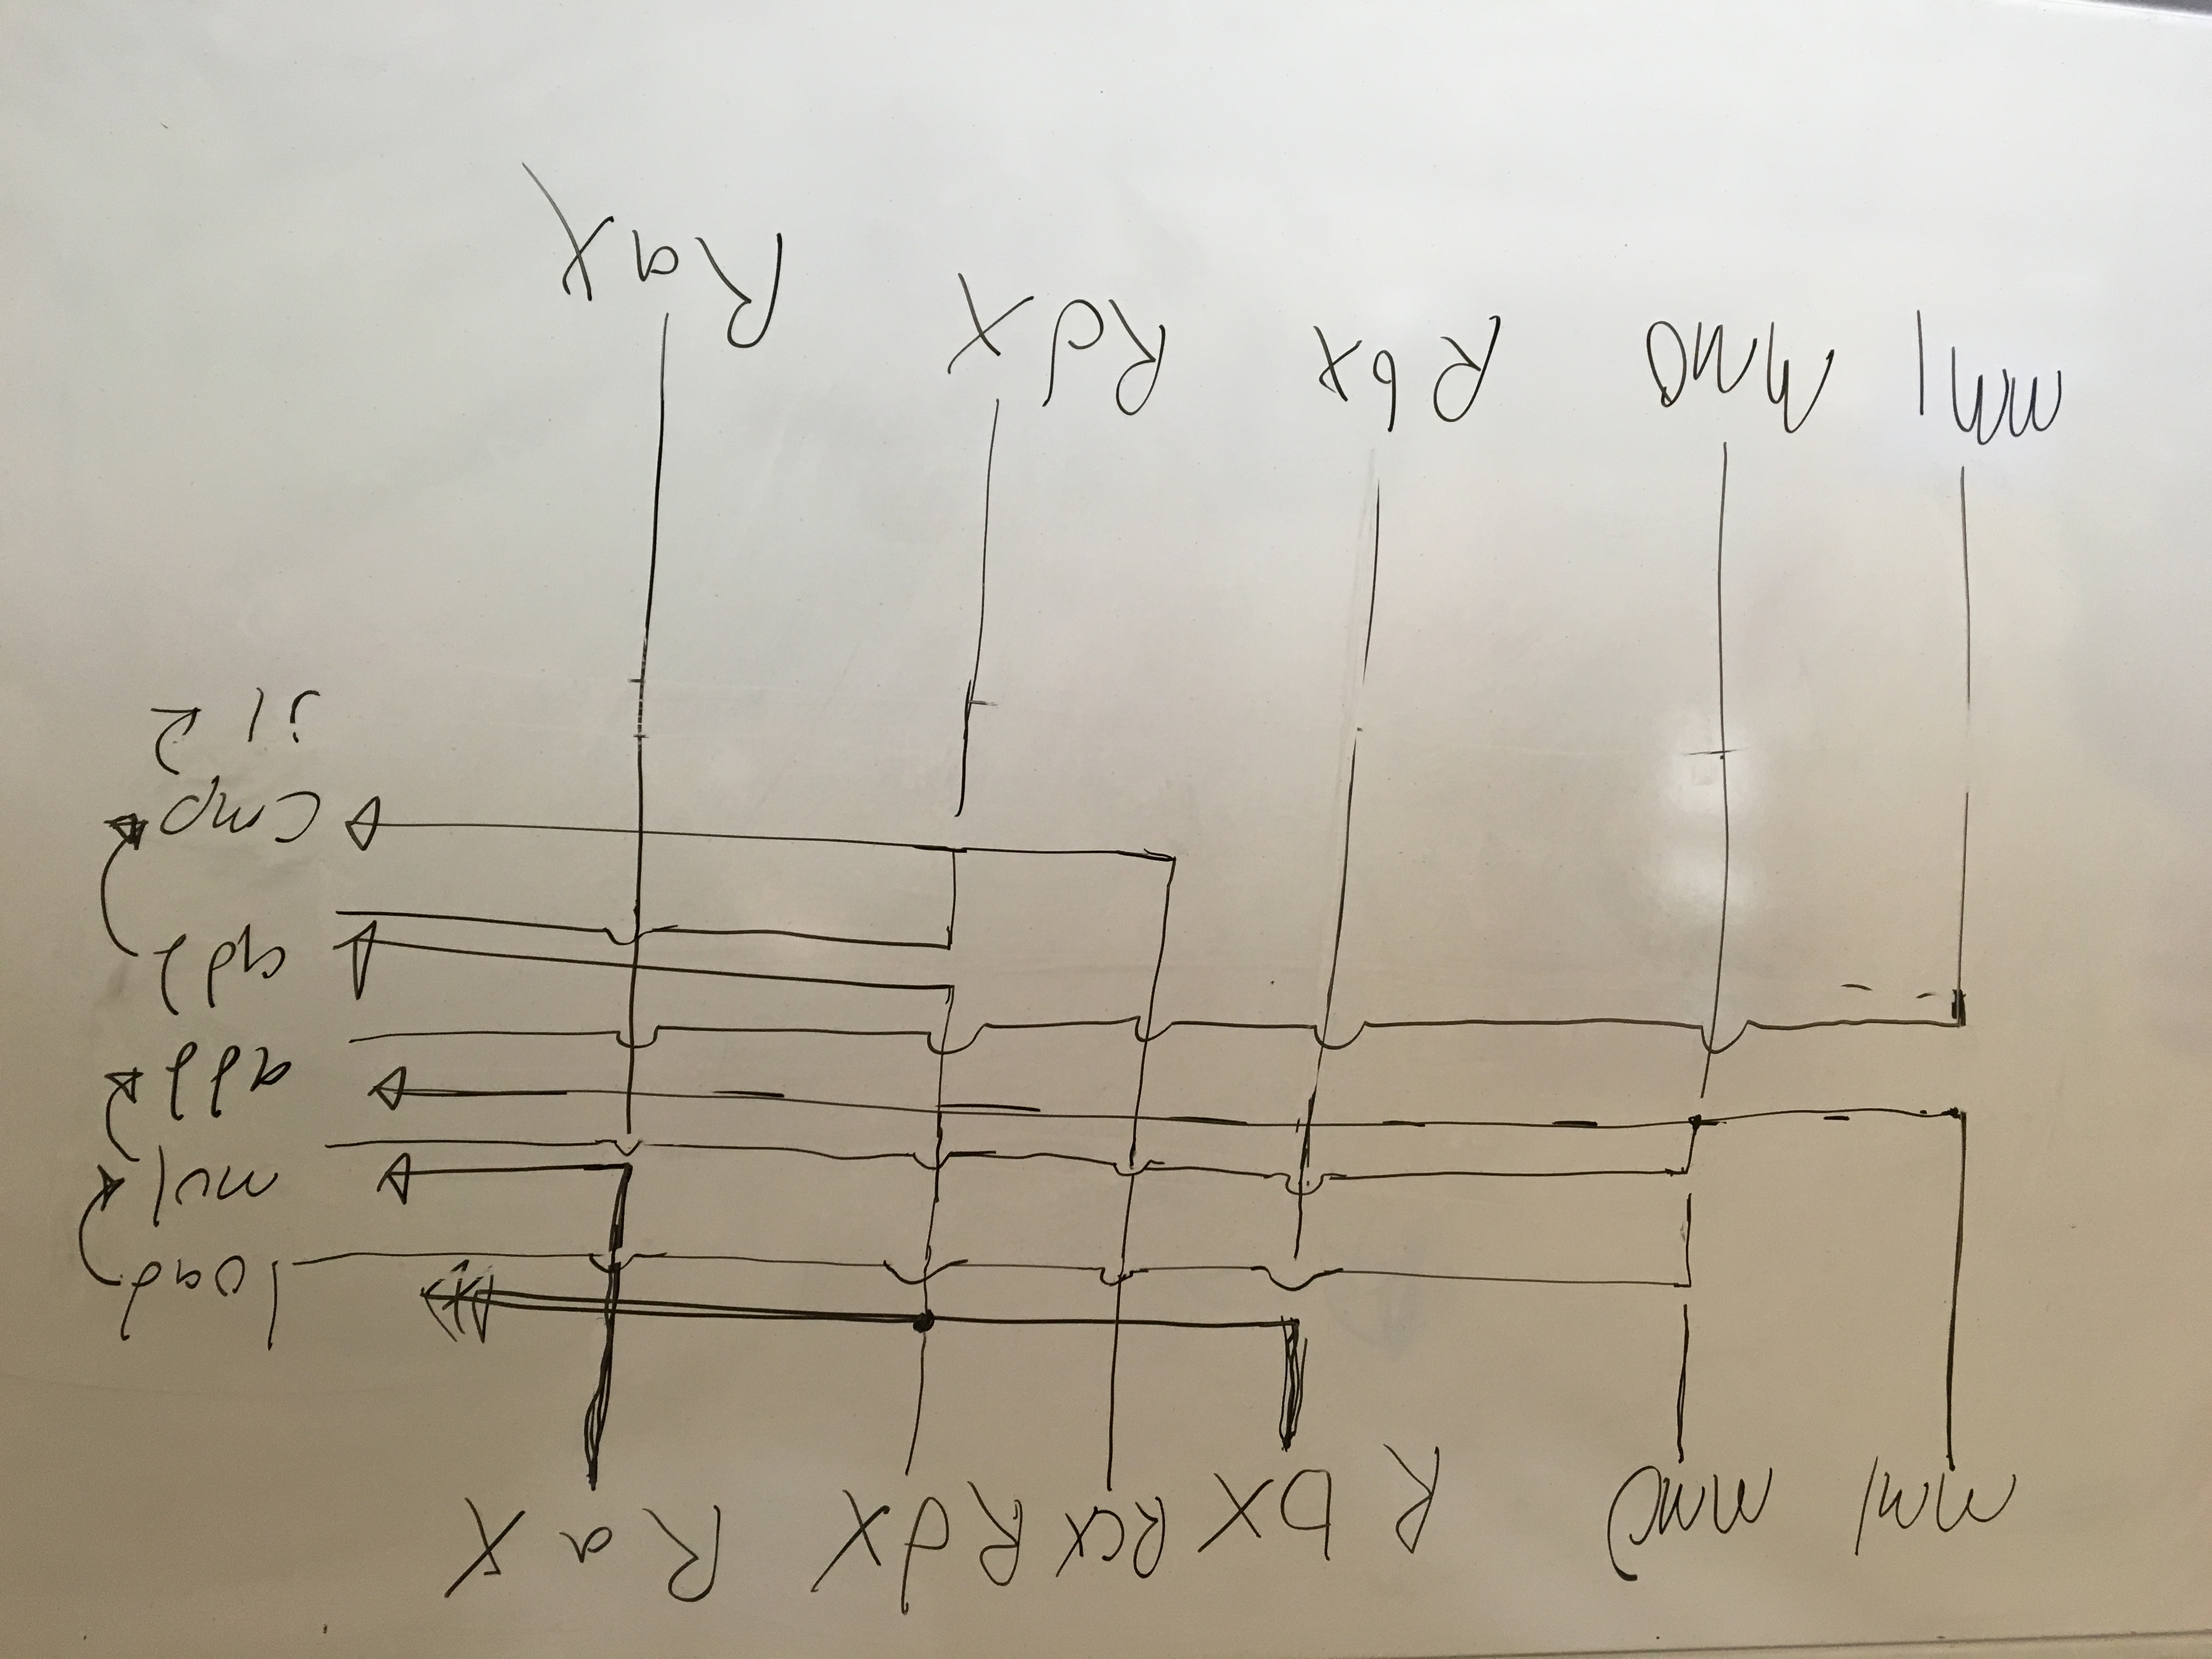 mm1 mm0 Rbx Rcx Rdx Rax
load
mul
add
add
cmp
jl
mm1 mm0 Rbx Rdx Rax